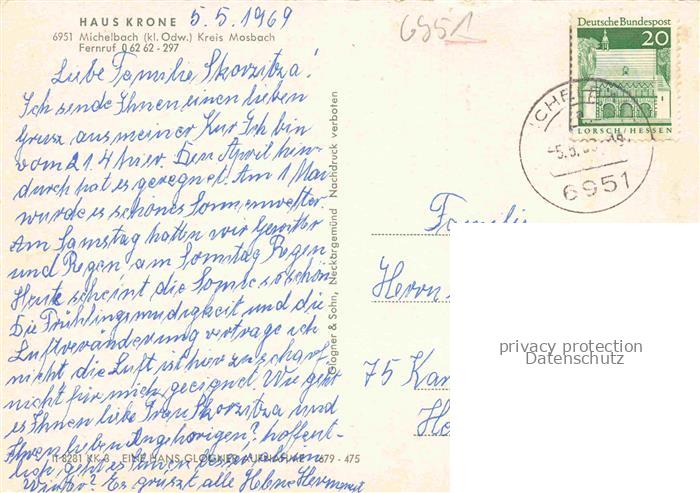 HAUS KRONE 5.5.1969
6951 Michelbach (kl. Odw.) Kreis Mosbach
Fernruf 0 62 62 - 297
Liebe Familie Skorzitza!
Ich sende Ihnen einen lieben
Gruss, aus meiner Kur Ich bin
vom 21.4 hier. Den April hin-
durch hat es geregnet. Am 1 Mai
wurde es schönes Sonnenwetter
Am Samstag hatten wir Gewitter
und Regen, am Sonntag Regen
Heute scheint die Sonne so schön.
Die Frühlingsmüdigkeit und die
Luftveränderung vertrage ich
nicht die Luft ist hier zu scharf
nicht für mich geeignet. Wie geht
es Ihnen liebe Frau Skorzitza und
Ihren lieben Angehörigen? hoffent-
lich geht es Ihnen
Winter? Es grüsst alle Helene
11 8281 KK B EINE HANS GLOGNER AUFNAHME 1679 - 475
Glogner & Sohn, Neckargemünd Nachdruck verboten
6951
Deutsche Bundespost
20
LORSCH/HESSEN
-5.5.
6951
Familie
Herrn
75 Kar
privacy protection
Datenschutz